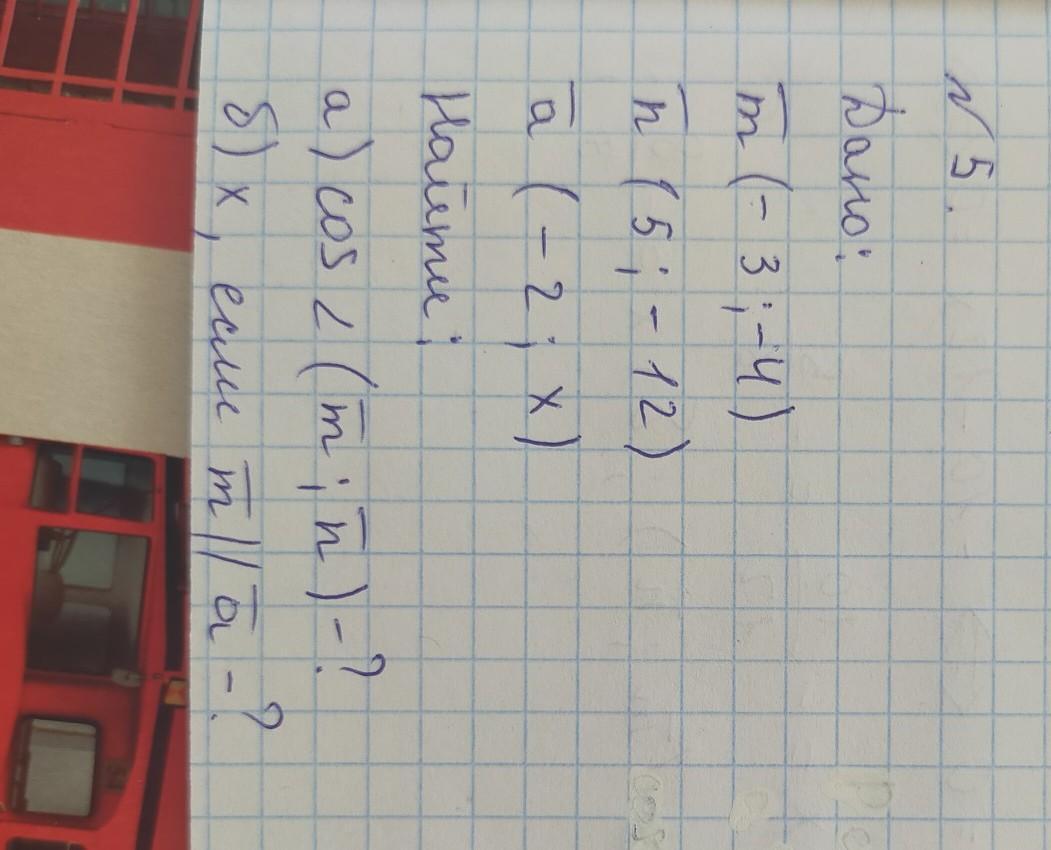 N 5.
Дано:
m̅ (- 3 ; -4)
n̅ (5 ; - 12)
a̅ (- 2 ; x)
Найти:
а) cos ∠ (m̅ ; n̅) - ?
б) x, если m̅ || a̅ - ?